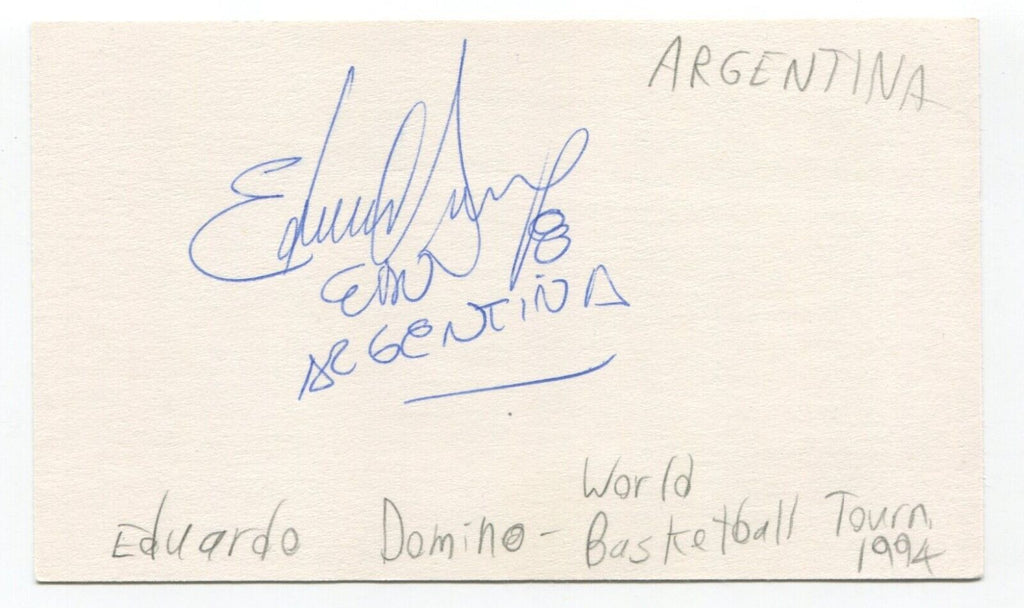 ARGENTINA
Eduardo
8
ARGENTINA
World
Eduardo Domino - Basketball Tourn.
1994